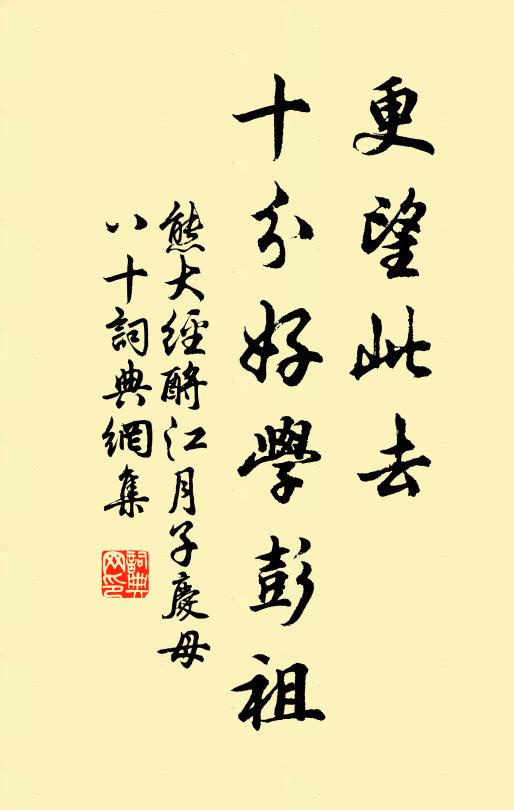 更望此去
十分好學彭祖
熊大經酹江月子慶母
八十詞典網集
詞典
网印